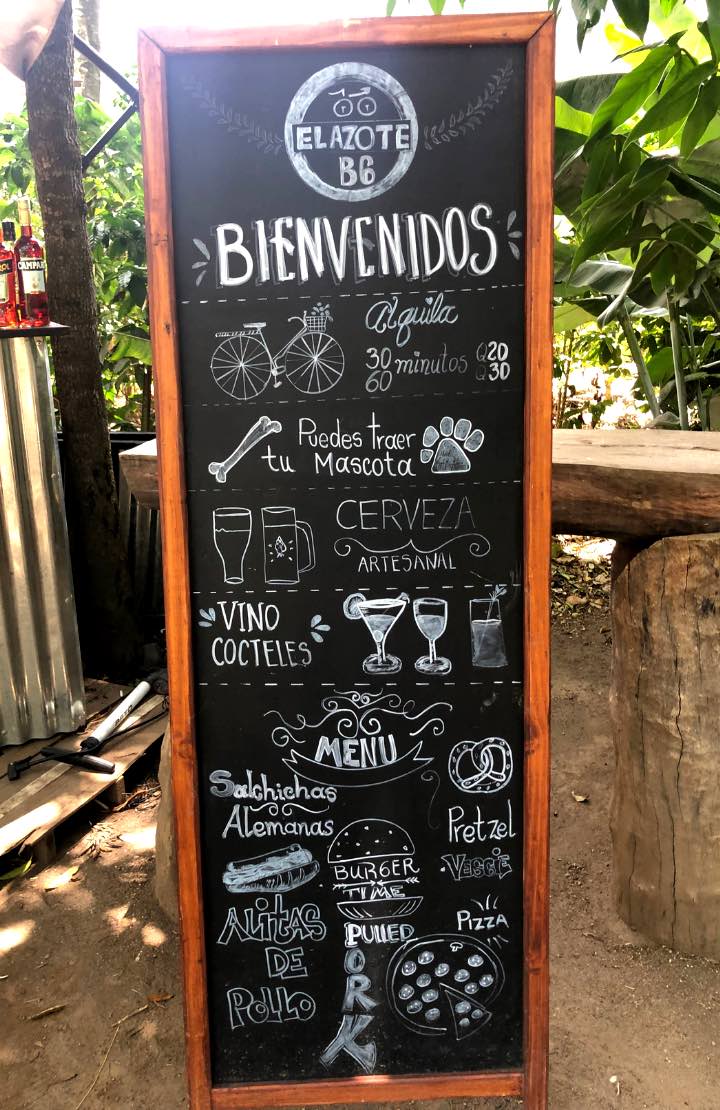 EL AZOTE
BG
BIENVENIDOS
Alquila
30 minutos Q20
60 Q30
Puedes traer
tu Mascota
CERVEZA
ARTESANAL
VINO
COCTELES
MENU
Salchichas
Alemanas
Pretzel
BURGER
TIME
VEGGIE
ALITAS
DE
POLLO
PULLED
PORK
PIZZA
CAMPARI